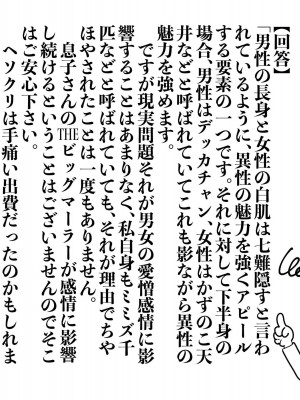 【回答】
「男性の長身と女性の白肌は七難隠すと言わ
れているように、異性の魅力を強くアピール
する要素の一つです。それに対して下半身の
場合、男性はデッカチャン、女性はかずのこ天
井などと呼ばれていてこれも影ながら異性の
魅力を強めます。
ですが現実問題それが男女の愛憎感情に影
響することはあまりなく、私自身もミミズ千
匹などと呼ばれていても、それが理由でちや
ほやされたことは一度もありません。
息子さんのTHEビッグマーラーが感情に影響
し続けるということはございませんのでそこ
はご安心下さい。
ヘソクリは手痛い出費だったのかもしれま